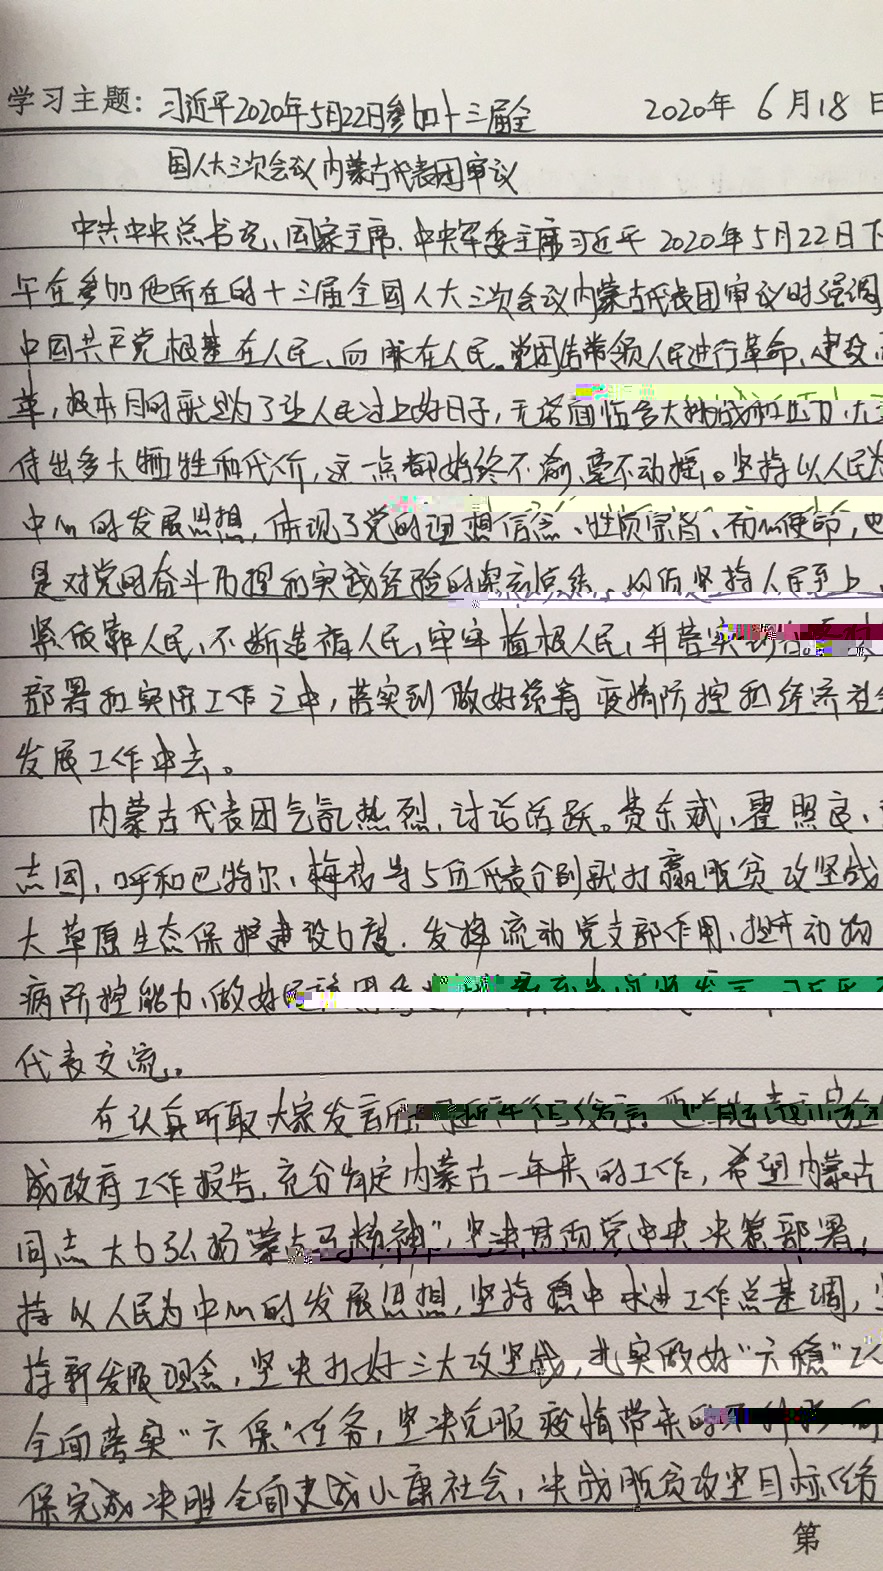 学习主题：习近平2020年5月22日参加十三届全 2020年 6月18日
国人大三次会议内蒙古代表团审议
中共中央总书记、国家主席、中央军委主席习近平2020年5月22日下
午在参加他所在的十三届全国人大三次会议内蒙古代表团审议时强调
中国共产党根基在人民、血脉在人民。党团结带领人民进行革命、建设、
革，根本目的就是为了让人民过上好日子，无论面临多大挑战和压力，无
付出多大牺牲和代价，这一点都始终不渝、毫不动摇。坚持以人民为
中心的发展思想，体现了党的理想信念、性质宗旨、初心使命，也
是对党的奋斗历程和实践经验的深刻总结。必须坚持人民至上、
紧依靠人民、不断造福人民、牢牢植根人民，并落实到各
部署和实际工作之中，落实到做好统筹疫情防控和经济社会
发展工作中去。
内蒙古代表团气氛热烈，讨论活跃。费东斌、霍照良、
志国、呼和巴特尔、梅花等5位代表分别就打赢脱贫攻坚战
大草原生态保护建设力度、发挥流动党支部作用、提升动物
病防控能力、做好
代表交流。
在认真听取大家发言后，习近平作了发言。他首先表示完全
成政府工作报告，充分肯定内蒙古一年来的工作，希望内蒙古
同志大力弘扬“蒙古马精神”，坚决贯彻党中央决策部署，
持以人民为中心的发展思想，坚持稳中求进工作总基调，坚
持新发展理念，坚决打好三大攻坚战，扎实做好“六稳”工作
全面落实“六保”任务，坚决克服疫情带来的不利影响
保完成决胜全面建成小康社会，决战脱贫攻坚目标任务
第